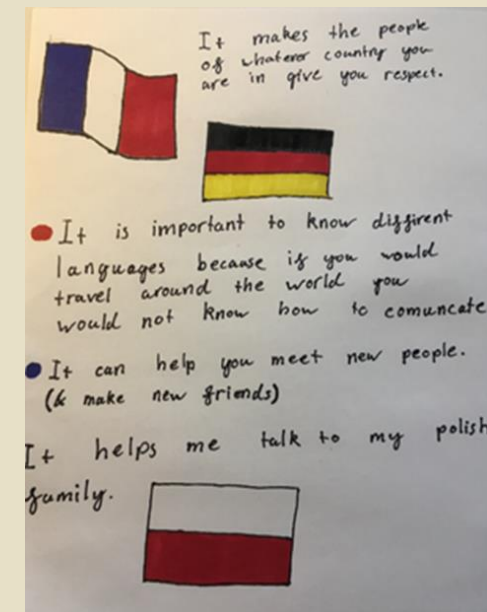 It makes the people
of whaterer country you
are in give you respect.
It is important to know diffirent
languages because if you would
travel around the world you
would not know how to comuncate
It can help you meet new people.
(& make new friends)
It helps me talk to my polish
family.